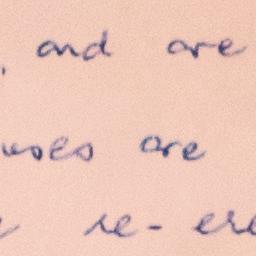 , and are
uses are
re-ere